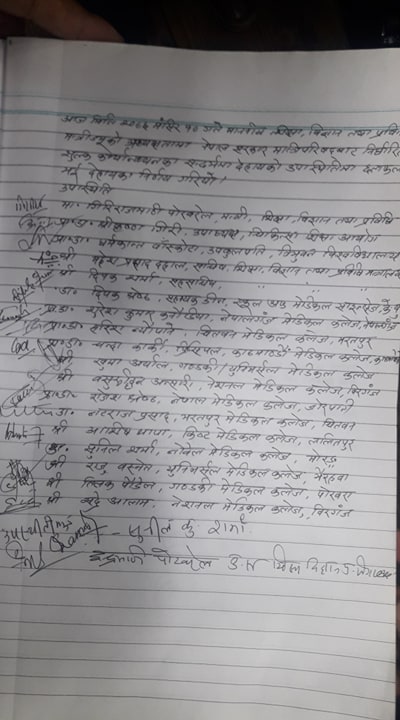 आज मिति २०७६ मंसिर १० गते माननीय शिक्षा, विज्ञान तथा प्रविधि
मन्त्रीज्यूको अध्यक्षतामा नेपाल सरकार मन्त्रिपरिषदबाट निर्धारित
शुल्क कार्यान्वयनका सन्दर्भमा देहायको उपस्थितिमा छलफल
भई देहायका निर्णय गरियो।
उपस्थिति
मा. गिरिराजमणी पोखरेल, मन्त्री, शिक्षा, विज्ञान तथा प्रविधि
प्रा.डा. श्रीकृष्ण गिरी, उपाध्यक्ष, चिकित्सा शिक्षा आयोग
प्रा.डा. धर्मकान्त बाँस्कोटा, उपकुलपति, त्रिभुवन विश्वविद्यालय
श्री महेश प्रसाद दाहाल, सचिव, शिक्षा, विज्ञान तथा प्रविधि मन्त्रालय
श्री दिपक शर्मा, सहसचिव,
डा. दिपक श्रेष्ठ, सहायक डीन, स्कुल अफ मेडिकल साइन्सेज
डा. सुरेश कुमार कनोडिया, नेपालगंज मेडिकल कलेज, नेपालगंज
प्रा.डा. हरिश न्यौपाने, चितवन मेडिकल कलेज, भरतपुर
प्रा.डा. चन्दा कार्की, प्रिन्सिपल, काठमाण्डौ मेडिकल कलेज,
श्री खुमा अर्याल, गण्डकी/युनिभर्सल मेडिकल कलेज
श्री बसरुद्दिन अन्सारी, नेशनल मेडिकल कलेज, विरगंज
प्रा.डा. राजेश श्रेष्ठ, नेपाल मेडिकल कलेज, जोरपाटी
डा. नटराज प्रसाद, भरतपुर मेडिकल कलेज, चितवन
श्री आशिष थापा, किष्ट मेडिकल कलेज, ललितपुर
डा. सुनिल शर्मा, नोबेल मेडिकल कलेज, मोरङ
श्री राजु बस्नेत, युनिभर्सल मेडिकल कलेज, भैरहवा
श्री तिलक पौडेल, गण्डकी मेडिकल कलेज, पोखरा
श्री आलाम, नेशनल मेडिकल कलेज, विरगंज
सुनील कु. शर्मा
पोखरेल